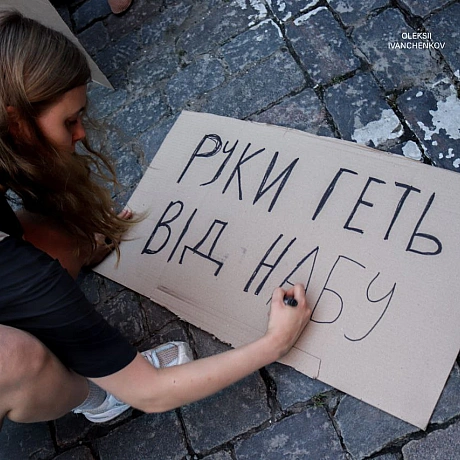 OLEKSII
IVANCHENKOV
РУКИ ГЕТЬ
ВІД НАБУ